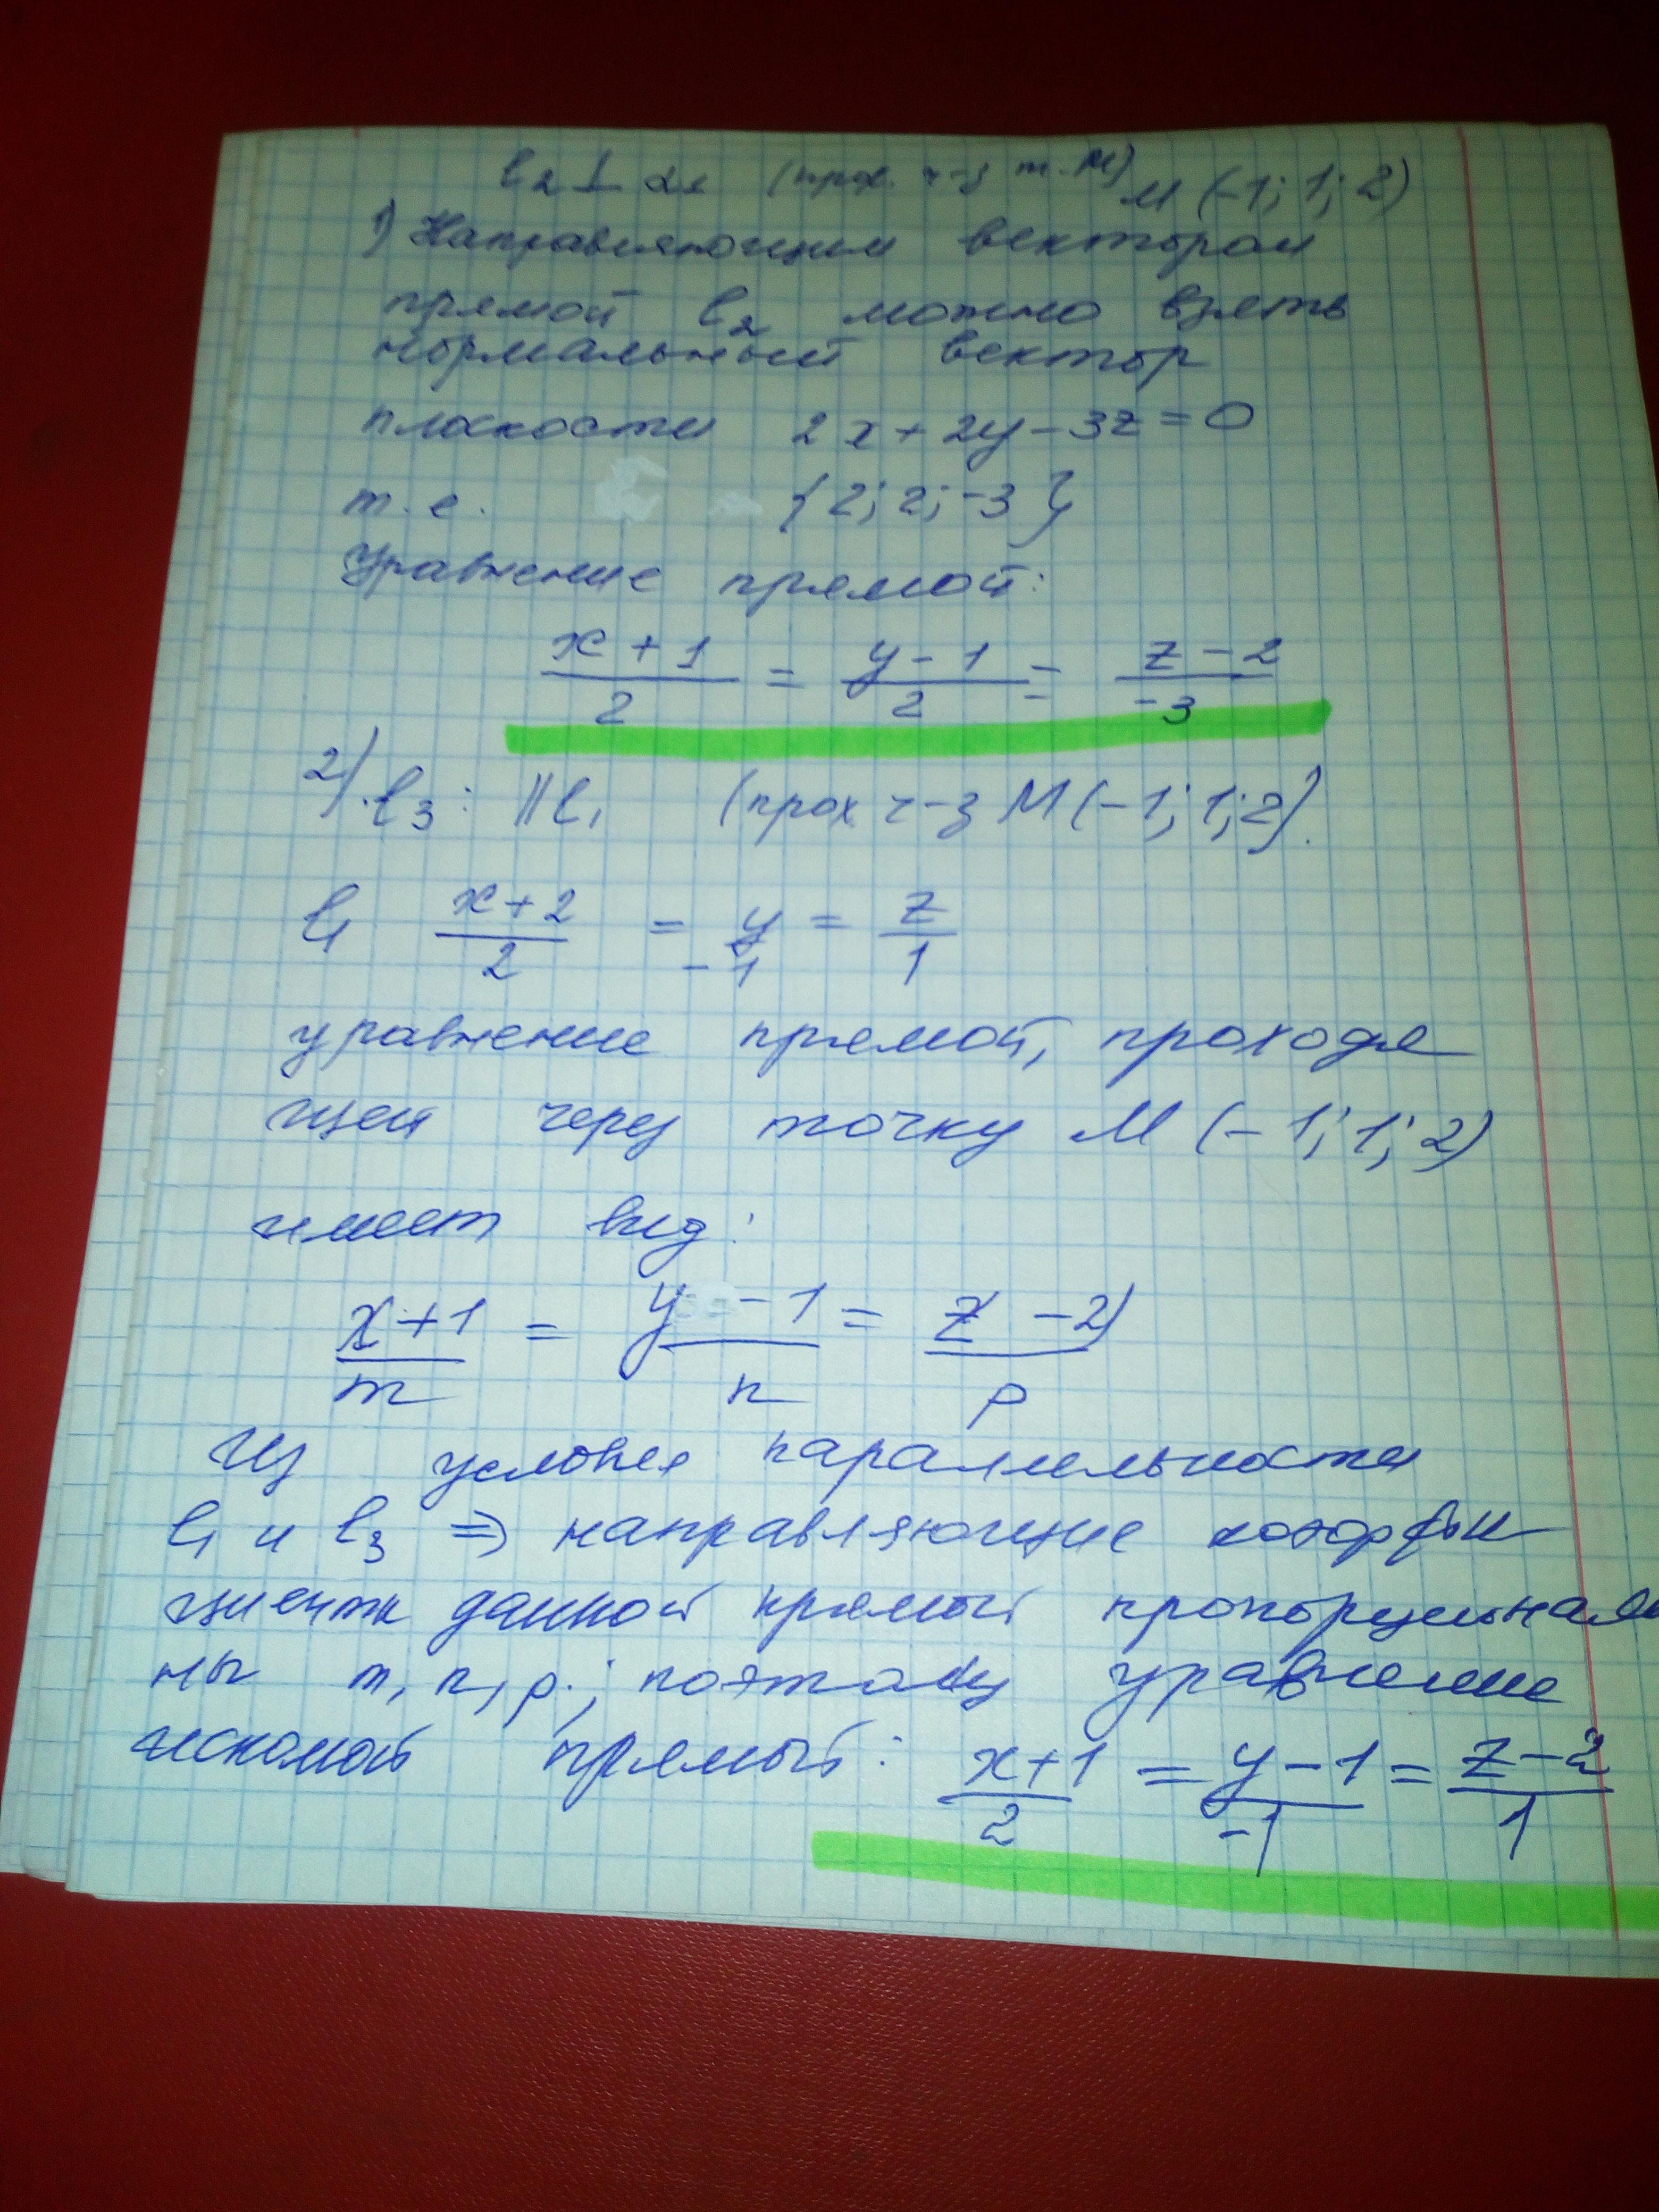 l₂ ⊥ α₁ (прох. ч-з т. М) М (-1; 1; 2)
1) Направляющим вектором
прямой l₂ можно взять
нормальный вектор
плоскости 2x + 2y - 3z = 0
т.е. {2; 2; -3}
Уравнение прямой:
(x + 1)/2 = (y - 1)/2 = (z - 2)/-3
2) l₃: || l₁ (прох ч-з М (-1; 1; 2).
l₁ (x + 2)/2 = y/-1 = z/1
уравнение прямой, проходя
щей через точку М (-1; 1; 2)
имеет вид:
(x + 1)/m = (y - 1)/n = (z - 2)/p
Из условия параллельности
l₁ и l₃ ⇒ направляющие коэффи
циенты данной прямой пропорциональ
ны m, n, p.; поэтому уравнение
искомой прямой: (x + 1)/2 = (y - 1)/-1 = (z - 2)/1